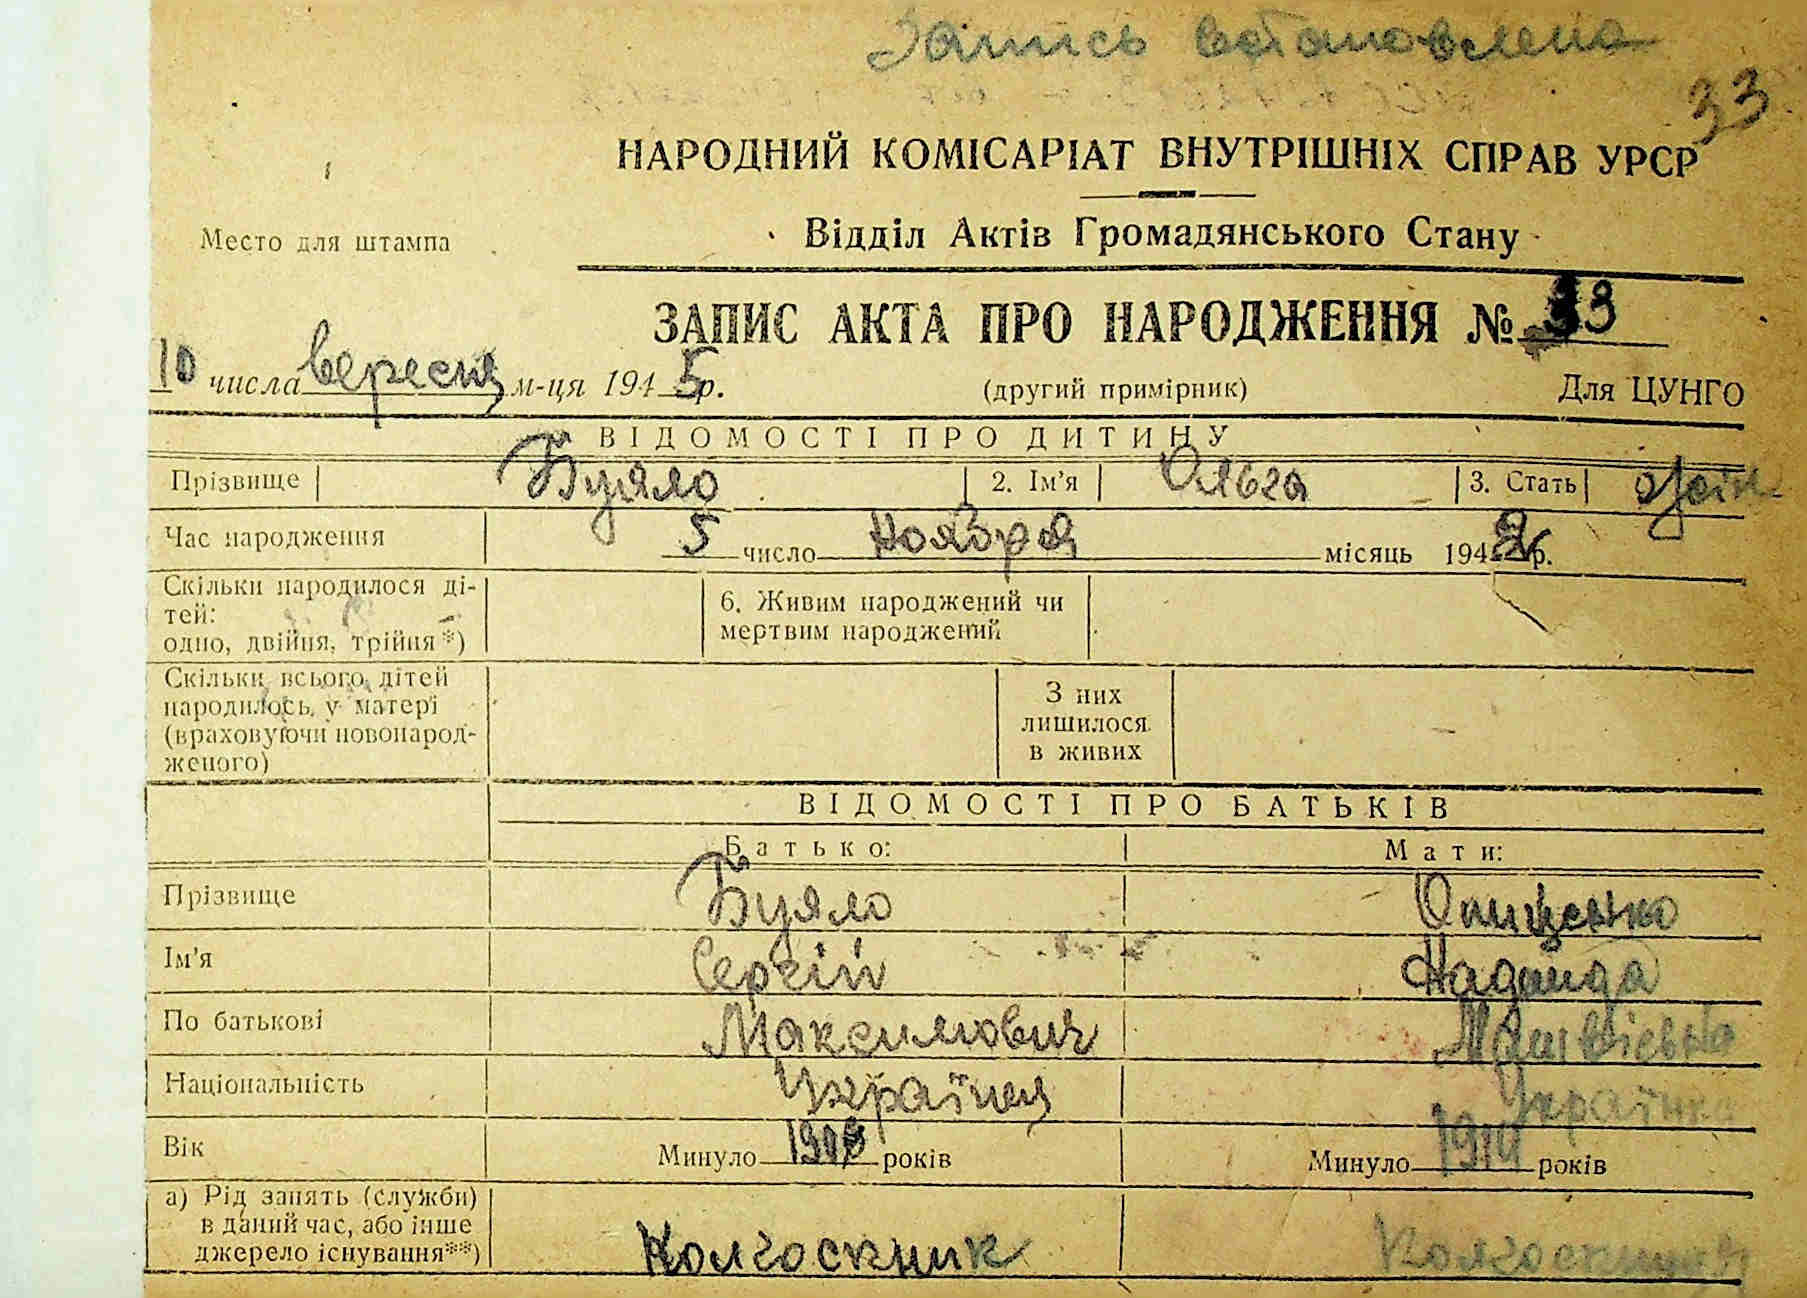 Запись встановлена
33
НАРОДНИЙ КОМІСАРІАТ ВНУТРІШНІХ СПРАВ УРСР
Место для штампа
Відділ Актів Громадянського Стану
ЗАПИС АКТА ПРО НАРОДЖЕННЯ № 33
10 числа вересня м-ця 1945 р.
(другий примірник)
Для ЦУНГО
ВІДОМОСТІ ПРО ДИТИНУ
Прізвище Буяло 2. Ім'я Ольга 3. Стать жін.
Час народження 5 число Ноября місяць 1942 р.
Скільки народилося ді-
тей:
одно, двійня, трійня*)
6. Живим народжений чи
мертвим народжений
Скільки всього дітей
народилось у матері
(враховуючи новонарод-
женого)
З них
лишилося
в живих
ВІДОМОСТІ ПРО БАТЬКІВ
Батько: Мати:
Прізвище Буяло
Ім'я Сергій Надежда
По батькові Максимович Матвієвна
Національність Українец Українка
Вік Минуло років Минуло 1914 років
а) Рід занять (служби)
в даний час, або інше
джерело існування**)
Колгоспник Колгоспниця